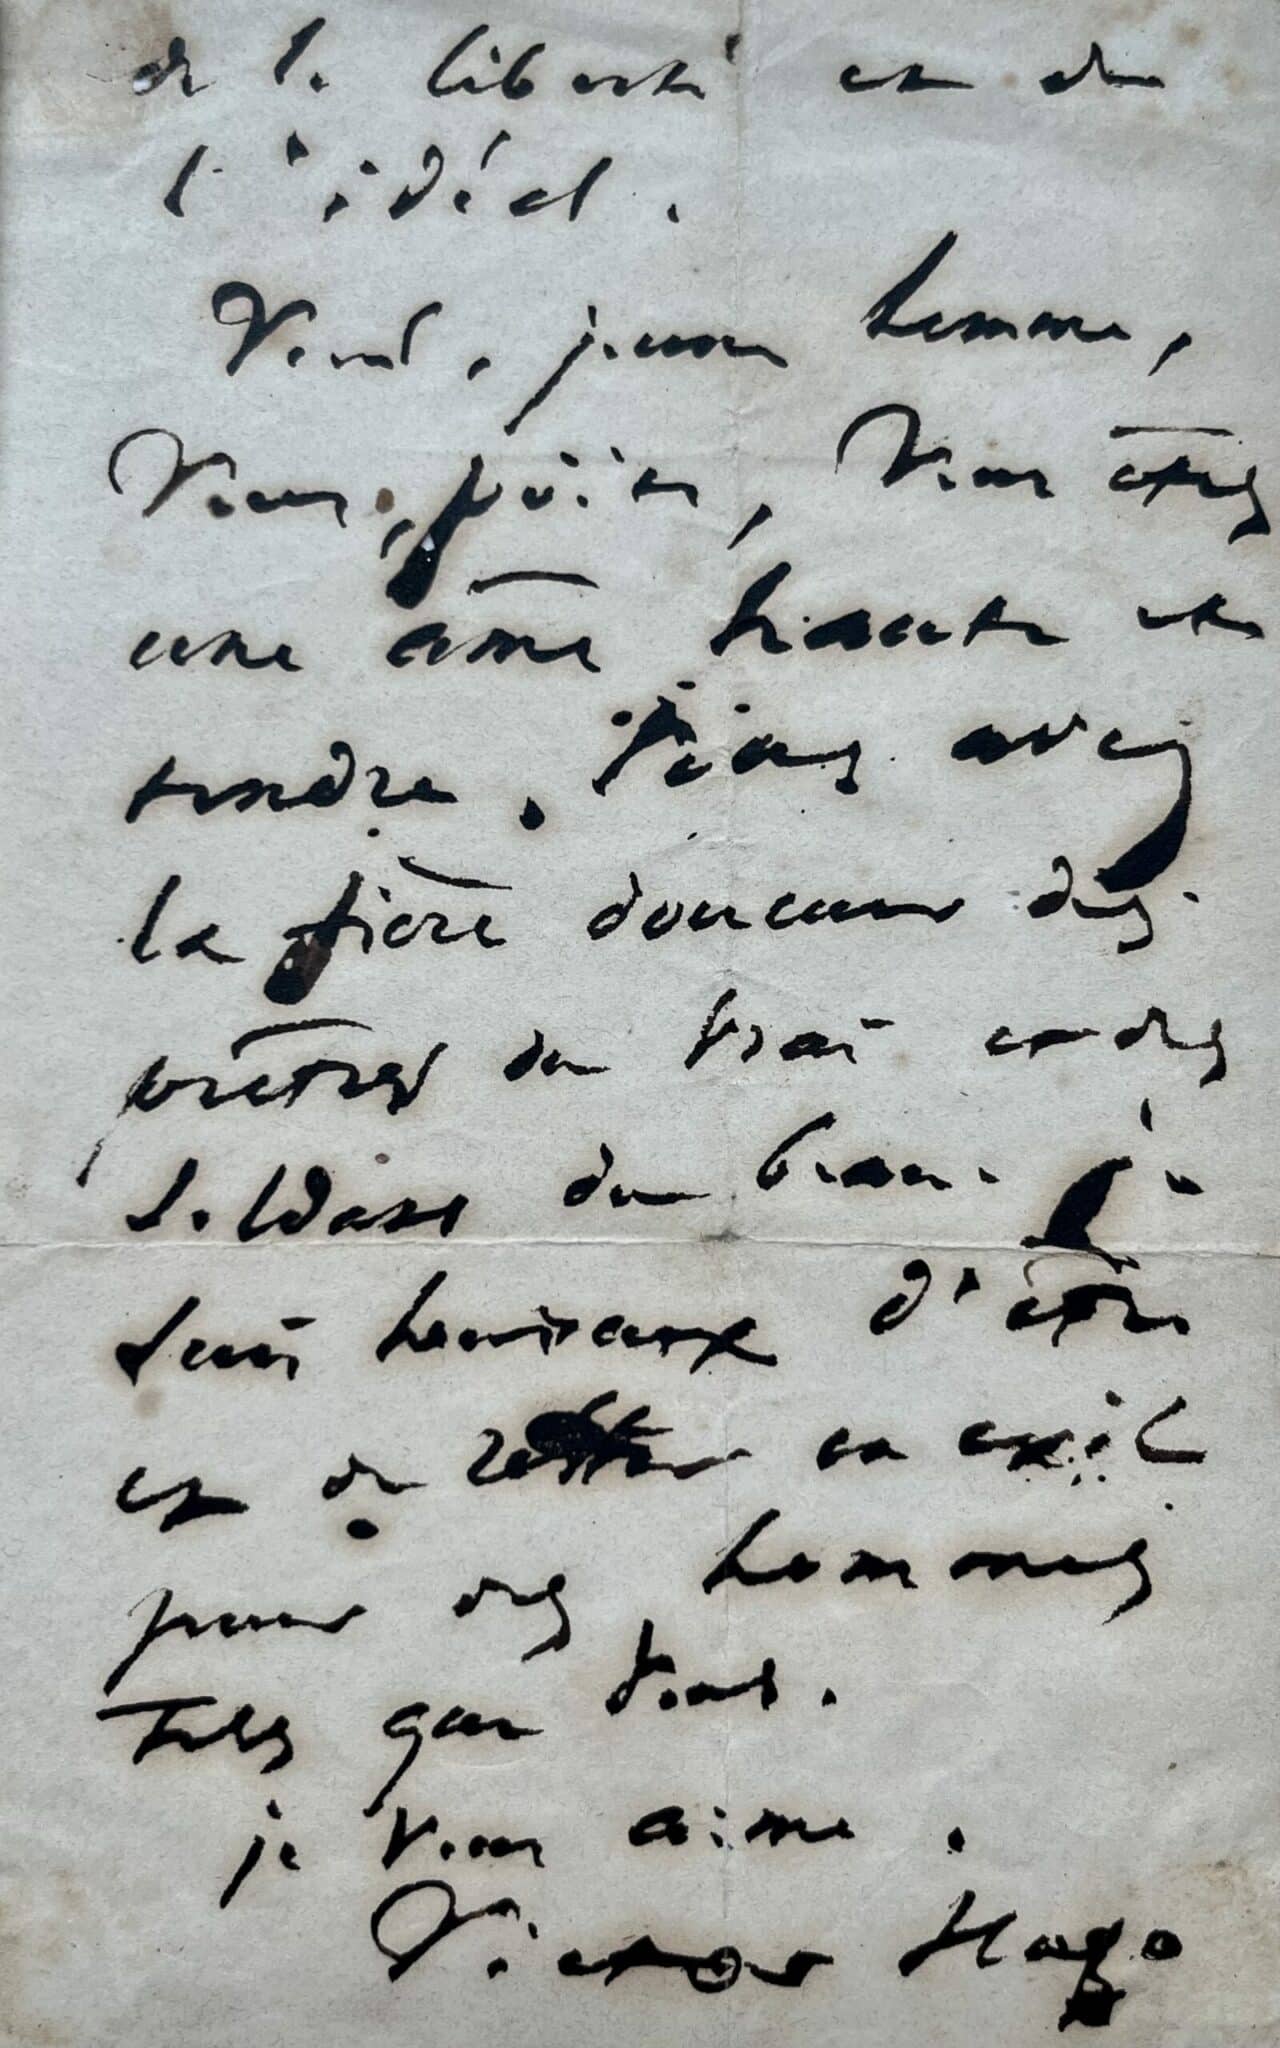 de la liberté et de
l'idéal.
Vous, jeune homme,
Vous, poëte, Vous êtes
une âme haute et
tendre. Vous avez
la fière douceur des
prêtres du vrai et des
soldats du beau. je
suis heureux d'être
et de rester en exil
pour des hommes
tels que vous.
je vous aime.
Victor Hugo